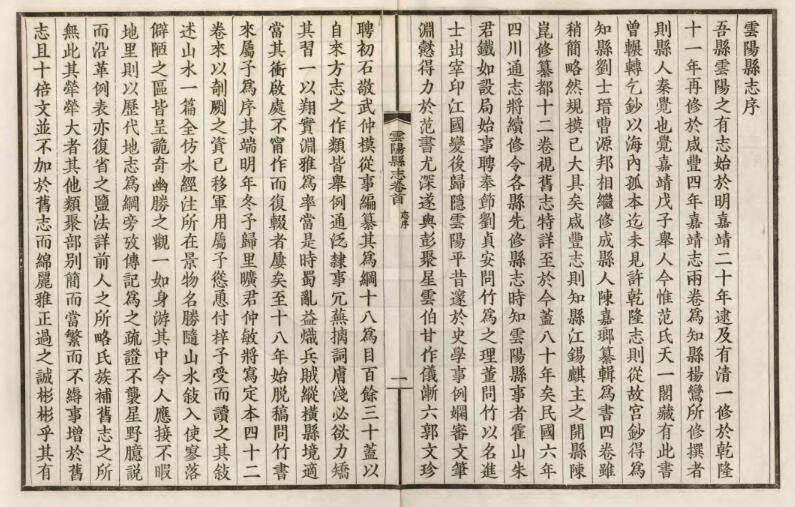 雲陽縣志序
吾縣雲陽之有志始於明嘉靖二十年逮及有清一修於乾隆
十一年再修於咸豐四年嘉靖志兩卷為知縣揚鸞所修撰者
則縣人秦覺也覺嘉靖戊子舉人今惟范氏天一閣藏有此書
曾輾轉乞鈔以海內孤本迄未見許乾隆志則從故宮鈔得為
知縣劉士瑨曹源邦相繼修成縣人陳嘉瑯纂輯為書四卷雖
稍簡略然規模已大具矣咸豐志則知縣江錫麒主之開縣陳
崑修纂都十二卷視舊志特詳至於今蓋八十年矣民國六年
四川通志將續修令各縣先修縣志時知雲陽縣事者霍山朱
君鐵如設局始事聘奉節劉貞安問竹為之理董問竹以名進
士出宰印江國變後歸隱雲陽平昔邃於史學事例嫻審文筆
淵懿得力於范書尤深遂與彭聚星雲伯甘作儀漸六郭文珍
雲陽縣志卷首 志序
一
聘初石敬武仲模從事編纂其為綱十八為目百餘三十蓋以
自來方志之作類皆舉例通泛隸事冗蕪摛詞膚淺必欲力矯
其習一以翔實淵雅為率當是時蜀亂益熾兵賊縱橫縣境適
當其衝啟處不甯作而復輟者屢矣至十八年始脫稿問竹書
來屬予為序其端明年冬予歸里曠君仲敏將寫定本四十二
卷來以剞劂之貲已移軍用屬予慫恿付梓予受而讀之其敍
述山水一篇全仿水經注所在景物名勝隨山水敍入使寥落
僻陋之區皆呈詭奇幽勝之觀一如身游其中令人應接不暇
地里則以歷代地志為綱旁攷傳記為之疏證不襲星野臆說
而沿革例表亦復省之鹽法詳前人之所略氏族補舊志之所
無此其犖犖大者其他類聚部別簡而當繁而不縟事增於舊
志且十倍文並不加於舊志而綿麗雅正過之誠彬彬乎其有